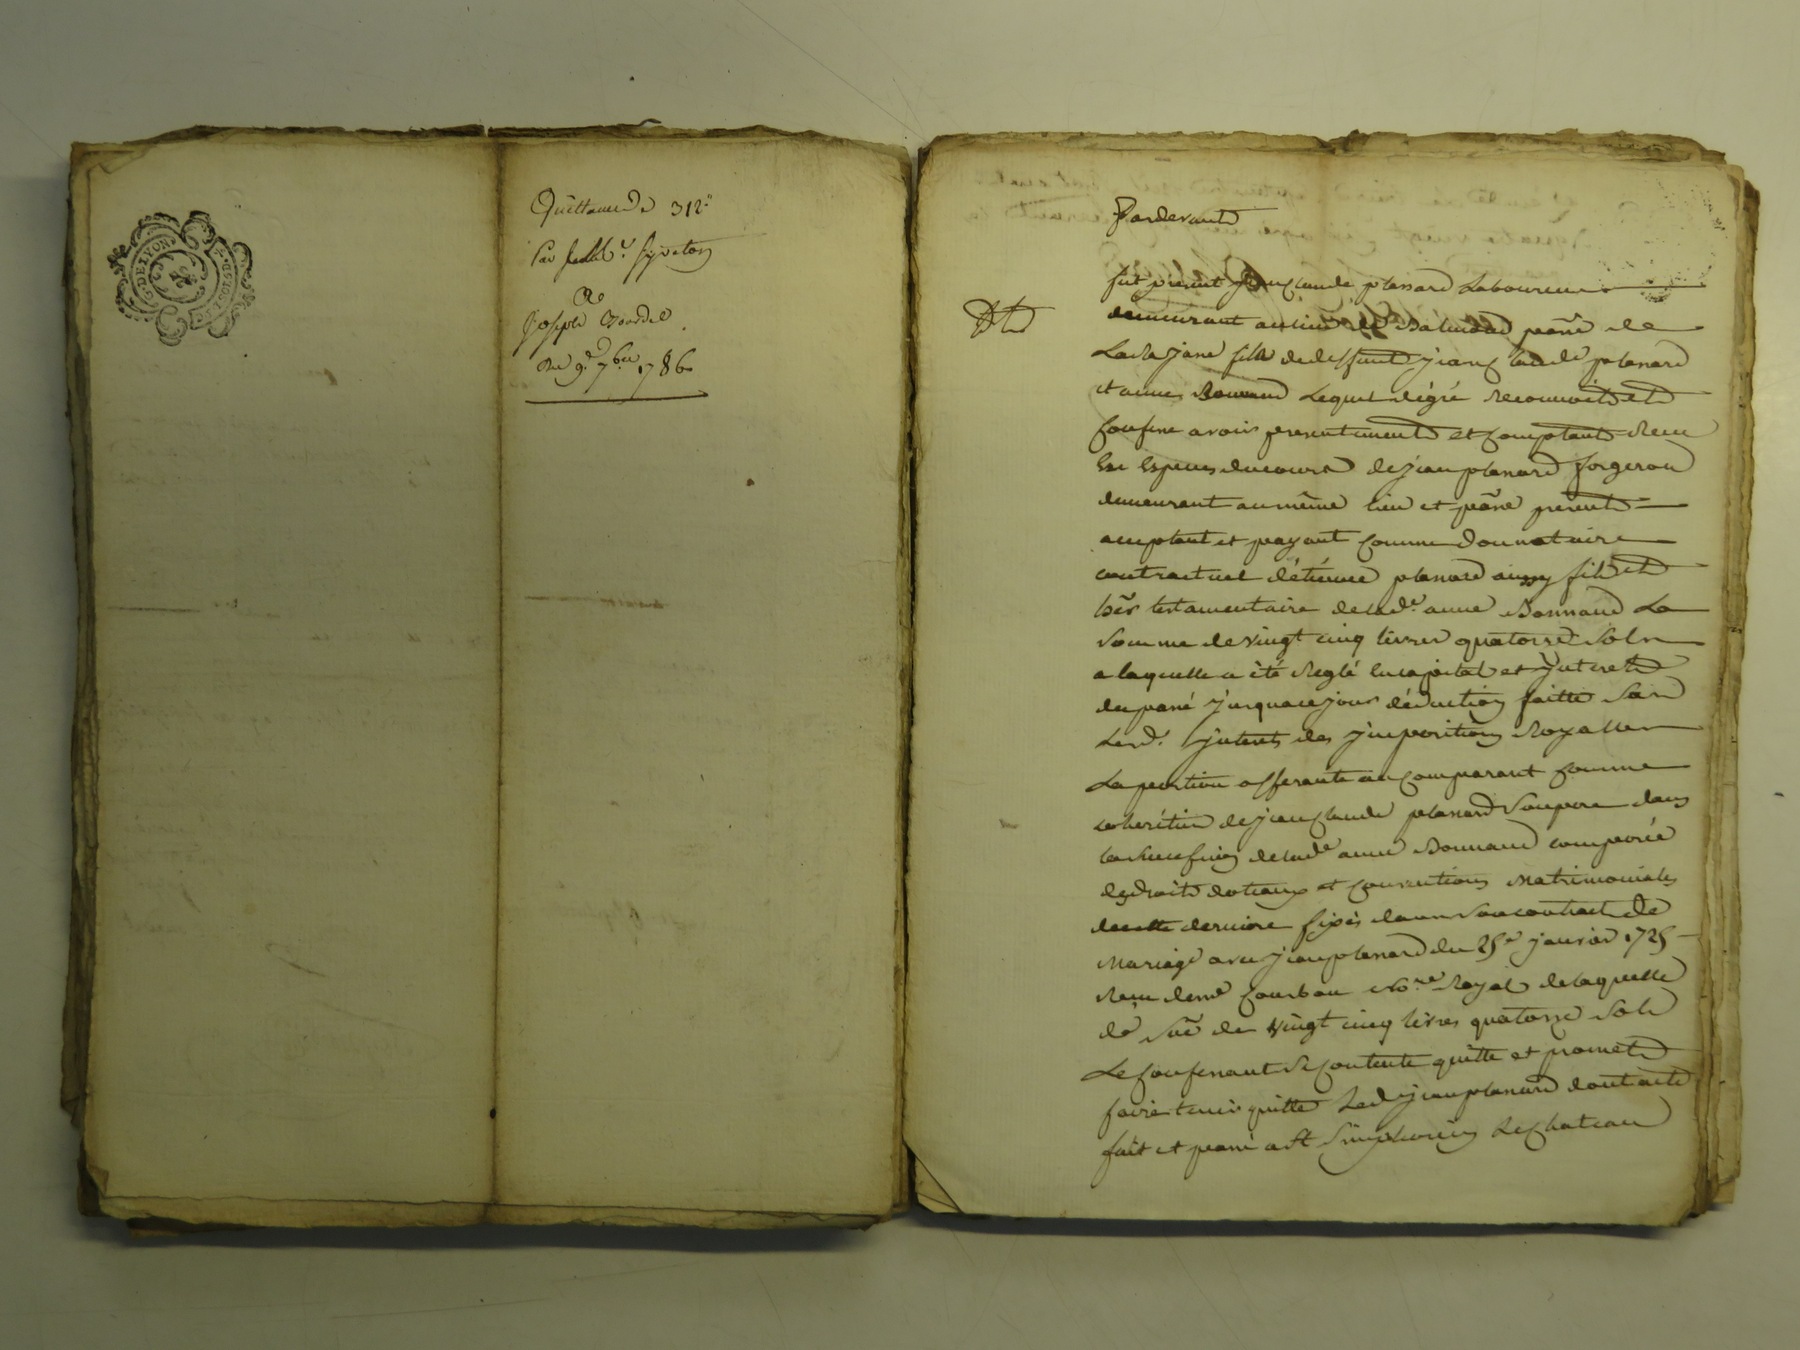 G. DE LYON
Quittance de 312ª
Par
a
Joseph
Du 9e 7bre 1786
Pardevant
fut présent Jean Claude planard Laboureur
demeurant au lieu de parre de
Lachajane fils de deffunt jean Claude planard
et anne Bonnand Lequel dégré Reconnoit et
Confesse avoir presentement et Comptant Recu
En Especes du cours de jean planard forgeron
demeurant au même lieu et parre present
acceptant et payant Comme donnataire
contractuel détienne planard aussy fils et
hèr testamentaire de lade anne Bonnand La
Somme de vingt cinq livres quatorze Sols
a laquelle a été Reglé en capital et jnterets
du passé jusqua ce jour déduction faitte Sur
Lesd. jnterets des jmpositions Royalles
La portion afferante au Comparant Comme
coheritier de jean Claude planard Son pere dans
la Succession de lade anne Bonnand composée
des droits dotaux et Conventions Matrimoniales
de cette derniere fixés dans Son contract de
Mariage avec jean planard du 25e janvier 1725
Recu de me Courbon nore Royal de laquelle
de Sme de vingt cinq livres quatorze Sols
Le Confessant Se Contente quitte et promet
faire tenir quitte Led jean planard dont acte
fait et passé a St Simphorien Le Chateau